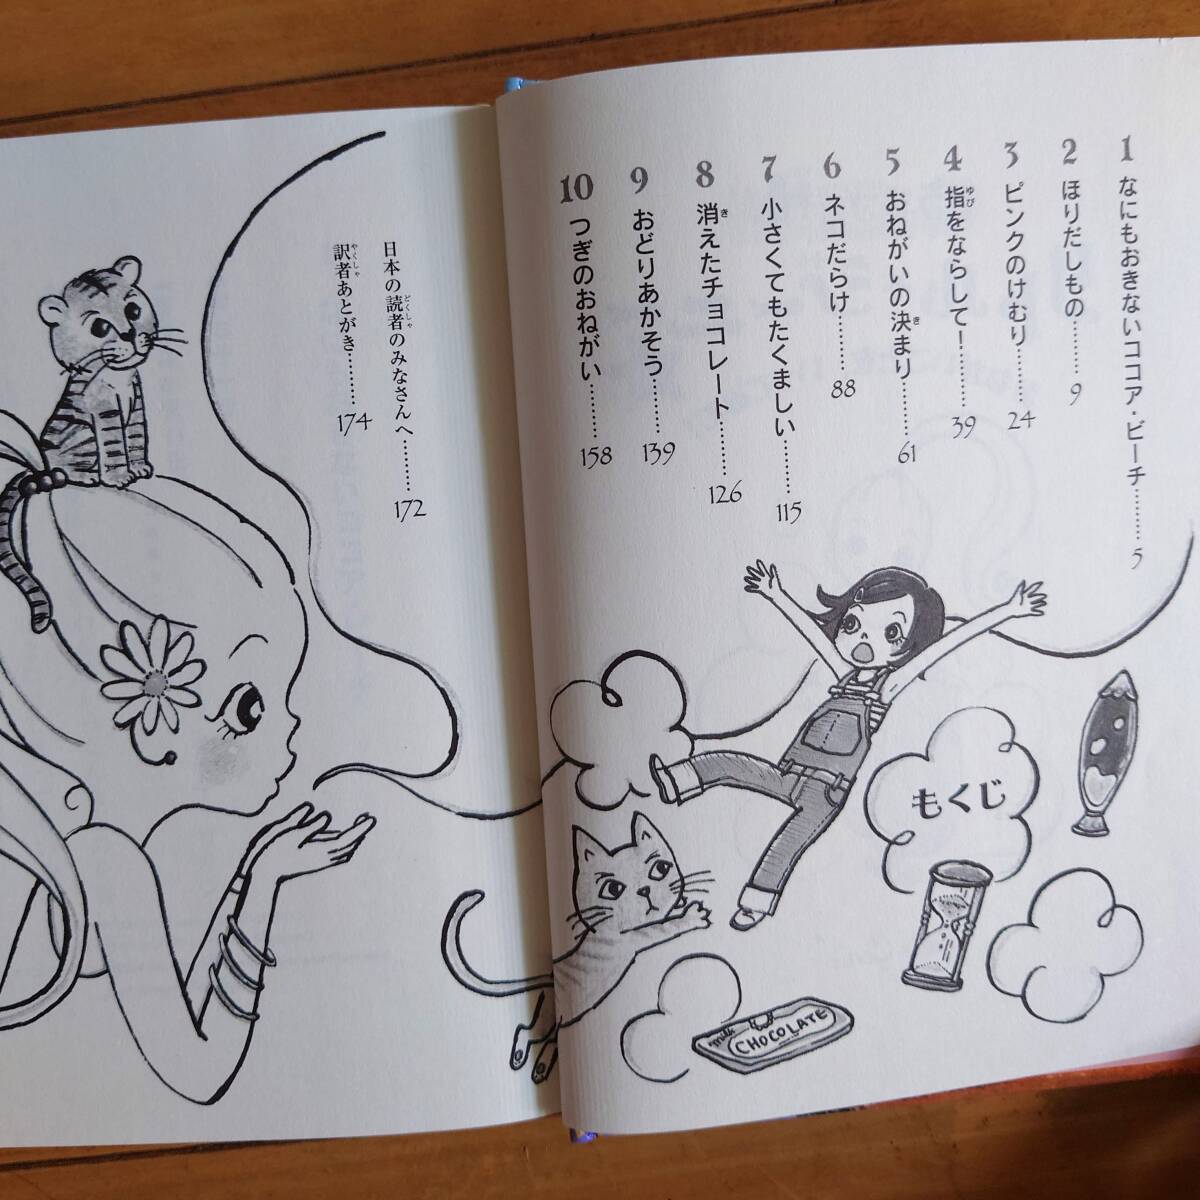 もくじ
1 なにもおきないココア・ビーチ………5
2 ほりだしもの………9
3 ピンクのけむり………24
4 指をならして!………39
5 おねがいの決まり………61
6 ネコだらけ………88
7 小さくてもたくましい………115
8 消えたチョコレート………126
9 おどりあかそう………139
10 つぎのおねがい………158
日本の読者のみなさんへ………172
訳者あとがき………174
milk
CHOCOLATE